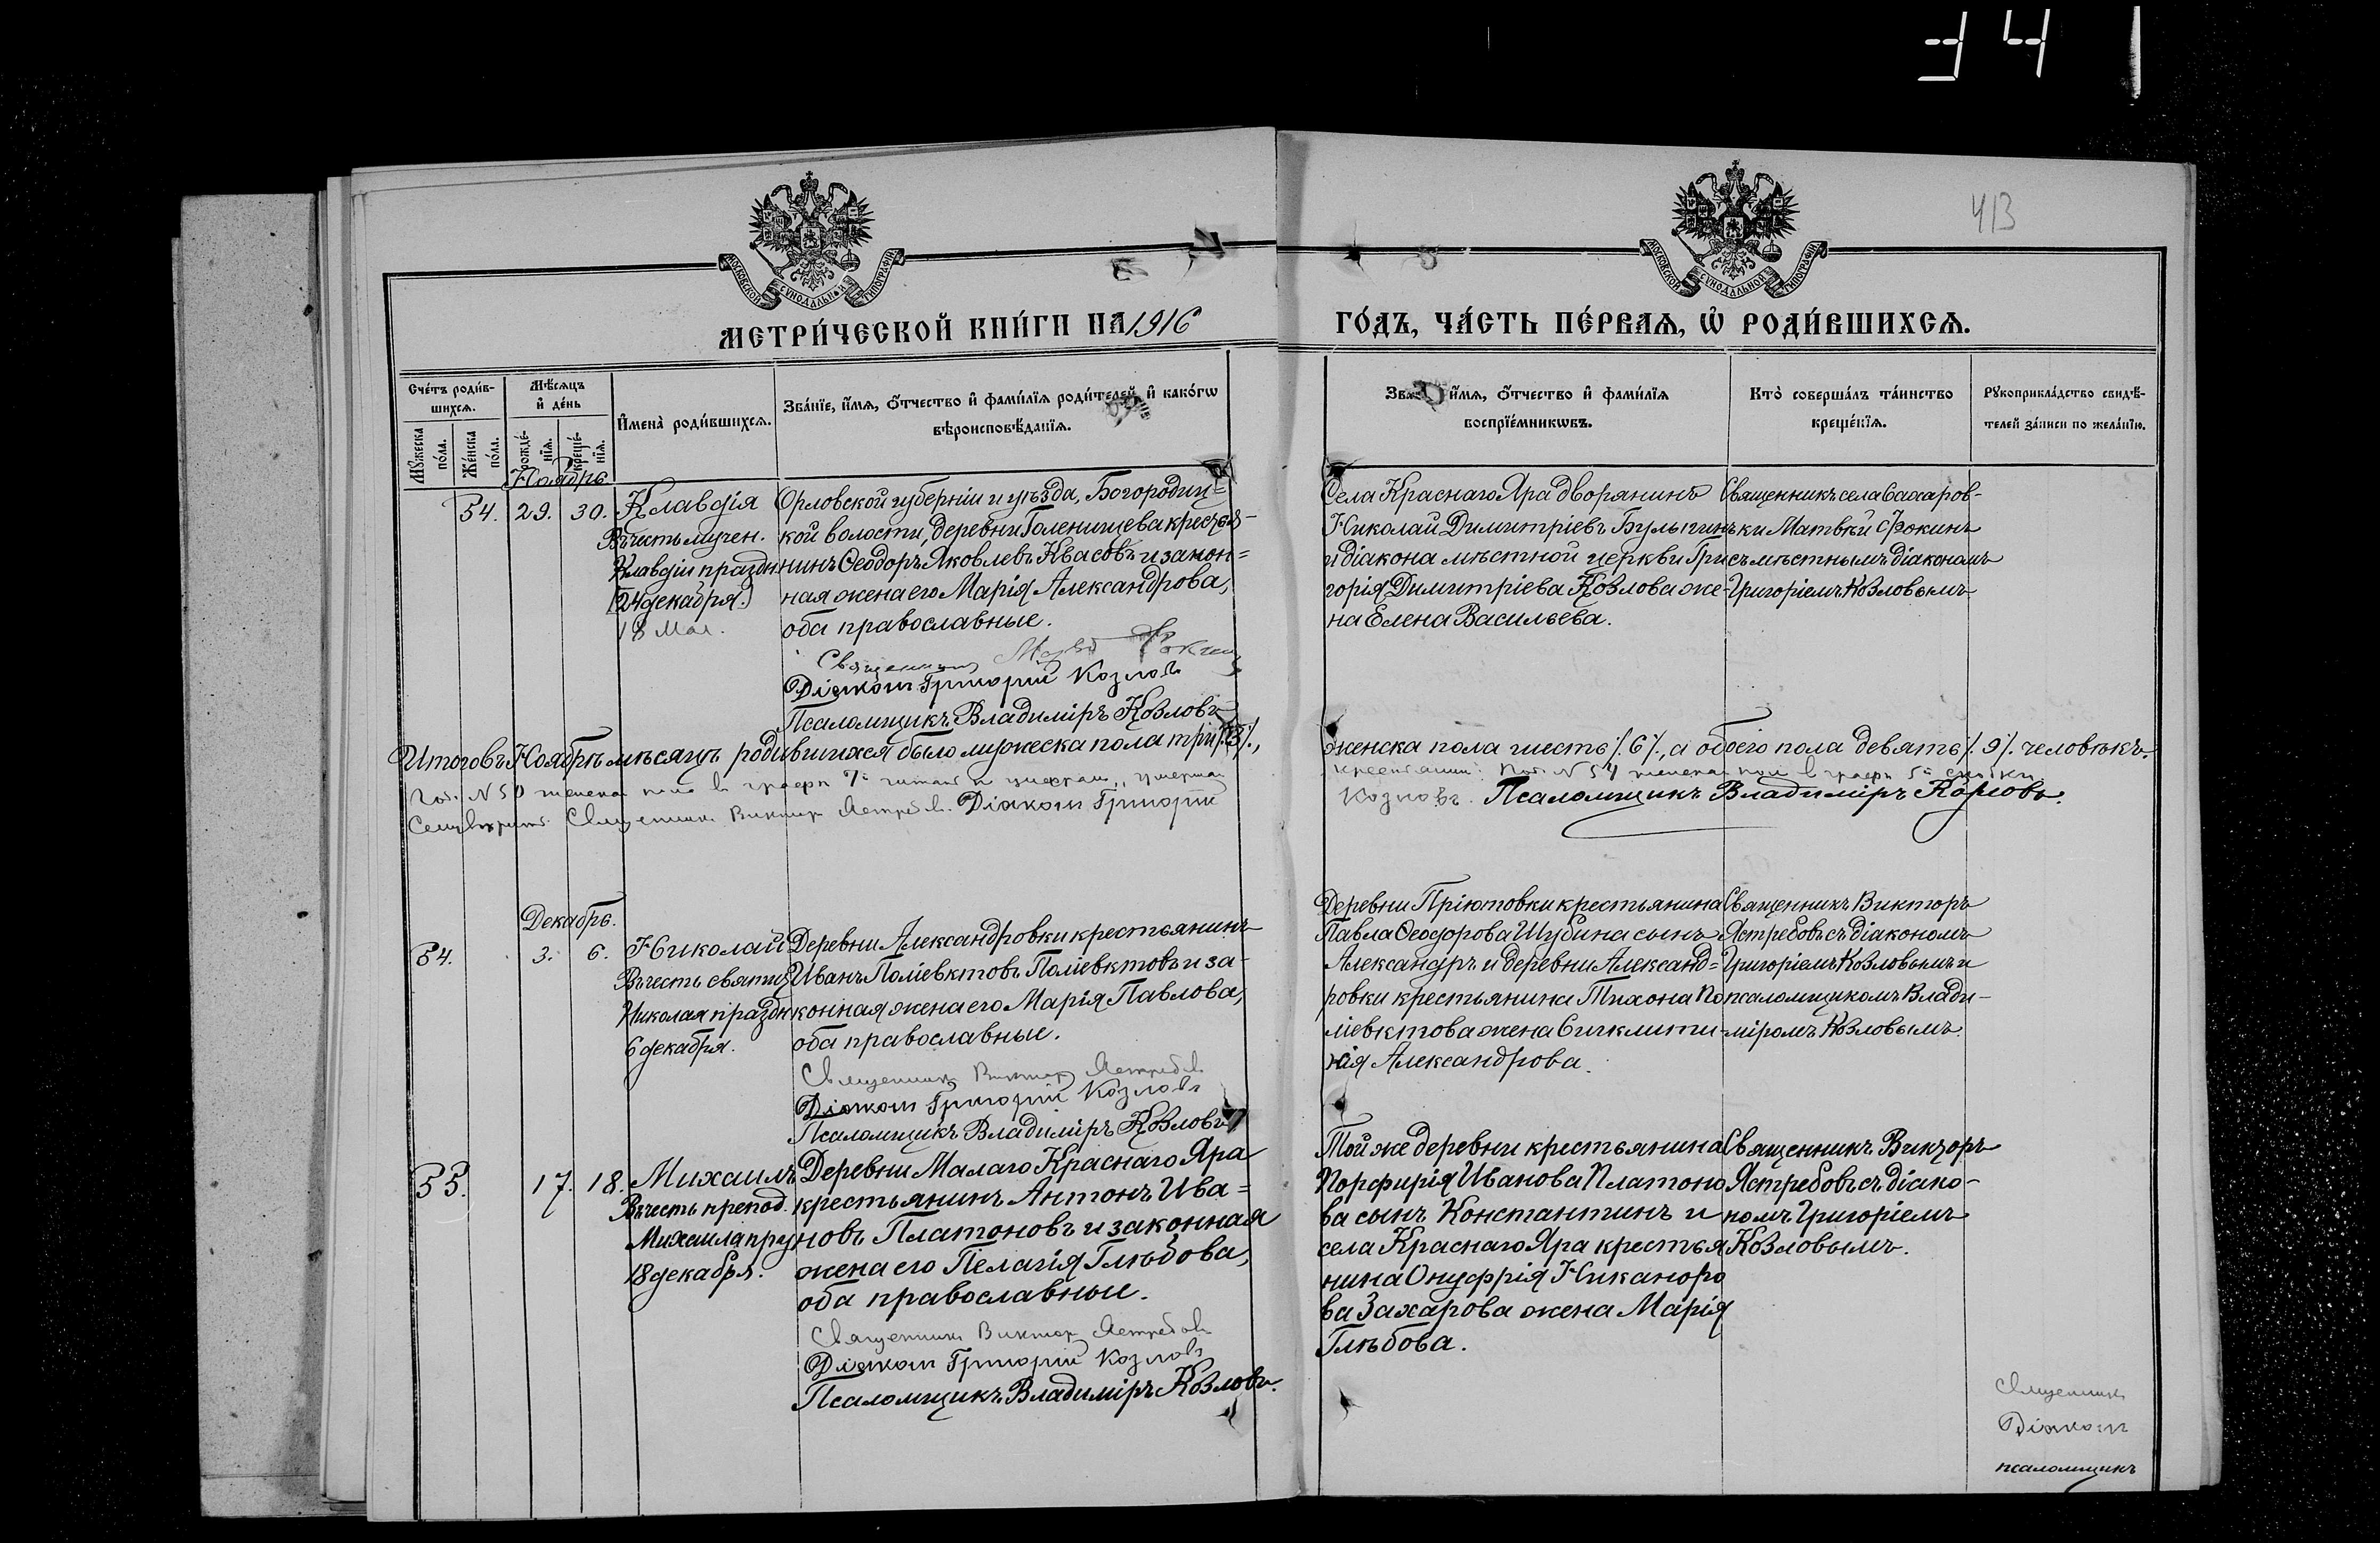 341
413
МОСКОВСКОЙ СѴНОДАЛЬНОЙ ТИПОГРАФІИ
МОСКОВСКОЙ СѴНОДАЛЬНОЙ ТИПОГРАФІИ
МЕТРИ́ЧЕСКОЙ КНИ́ГИ НА 1916
ГО́ДЪ, ЧА́СТЬ ПЕ́РВАѦ, Ѡ РОДИ́ВШИХСѦ.
Сче́тъ роди́в-
шихсѧ.
Мꙋ́жеска по́ла.
Же́нска по́ла.
Мѣ́сѧцъ
и҆ де́нь
рожде́-
нїѧ.
креще́-
нїѧ.
И҆мена̀ роди́вшихсѧ.
Зва́нїе, и҆́мѧ, ѻ҆́тчество и҆ фами́лїѧ роди́телей, и҆ како́гѡ
вѣроисповѣ́данїѧ.
и҆́мѧ, ѻ҆́тчество и҆ фами́лїѧ
воспрїе́мникѡвъ.
Кто̀ соверша́лъ та́инство
креще́нїѧ.
Рꙋкоприкла́дство свидѣ́-
телей за́писи по жела́нїю.
Ноябрь
54. 29. 30. Клавдія
Въ честь мучен.
Клавдіи праздн.
(24 декабря.)
18 Мая.
Орловской губерніи и уѣзда, Богородиц=
кой волости, деревни Голенищева крестья-
нинъ Ѳеодоръ Яковлевъ Квасовъ и закон=
ная жена его Марія Александрова,
оба православные.
Священникъ Фокинъ
Діаконъ Григорій Козловъ
Псаломщикъ Владиміръ Козловъ
Села Краснаго Яра дворянинъ
Николай Димитріевъ Булыгинъ
и діакона мѣстной церкви Гри
горія Димитріева Козлова же-
на Елена Васильева.
Священникъ села Сахаров-
ки Матвѣй Фокинъ
съ мѣстнымъ діакономъ
Григоріемъ Козловымъ
Итого въ Ноябрѣ мѣсяцѣ родившихся было мужеска пола три ⁒3⁒,
женска пола шесть ⁒6⁒, а обоего пола девять ⁒9⁒ человѣкъ.
№ 50 женска пола въ графѣ 7й читать
№ 54 женска пола въ графѣ 5й
Священникъ Викторъ Ястребовъ. Діаконъ Григорій
Козловъ. Псаломщикъ Владиміръ Козловъ.
Декабрь.
54. 3. 6. Николай
Въ честь святит.
Николая праздн
6 декабря.
Деревни Александровки крестьянинъ
Иванъ Поліевктовъ Поліевктовъ и за-
конная жена его Марія Павлова,
оба православные.
Священникъ Викторъ Ястребовъ
Діаконъ Григорій Козловъ
Псаломщикъ Владиміръ Козловъ
Деревни Пріютовки крестьянина
Павла Ѳеодорова Шубина сынъ
Александръ и деревни Александ=
ровки крестьянина Тихона По
ліевктова жена Сигклити-
кія Александрова.
Священникъ Викторъ
Ястребовъ съ діакономъ
Григоріемъ Козловымъ и
псаломщикомъ Влади-
міромъ Козловымъ
55. 17. 18. Михаилъ
Въ честь препод.
Михаила пр.
18 декабря.
Деревни Малаго Краснаго Яра
крестьянинъ Антонъ Ива=
новъ Платоновъ и законная
жена его Пелагія Глѣбова,
оба православные.
Священникъ Викторъ Ястребовъ
Діаконъ Григорій Козловъ
Псаломщикъ Владиміръ Козловъ.
Той же деревни крестьянина
Порфирія Иванова Платоно
ва сынъ Константинъ и
села Краснаго Яра крестья
нина Онуфрія Никаноро
ва Захарова жена Марія
Глѣбова.
Священникъ Викторъ
Ястребовъ съ діако-
номъ Григоріемъ
Козловымъ.
Священникъ
Діаконъ
псаломщикъ